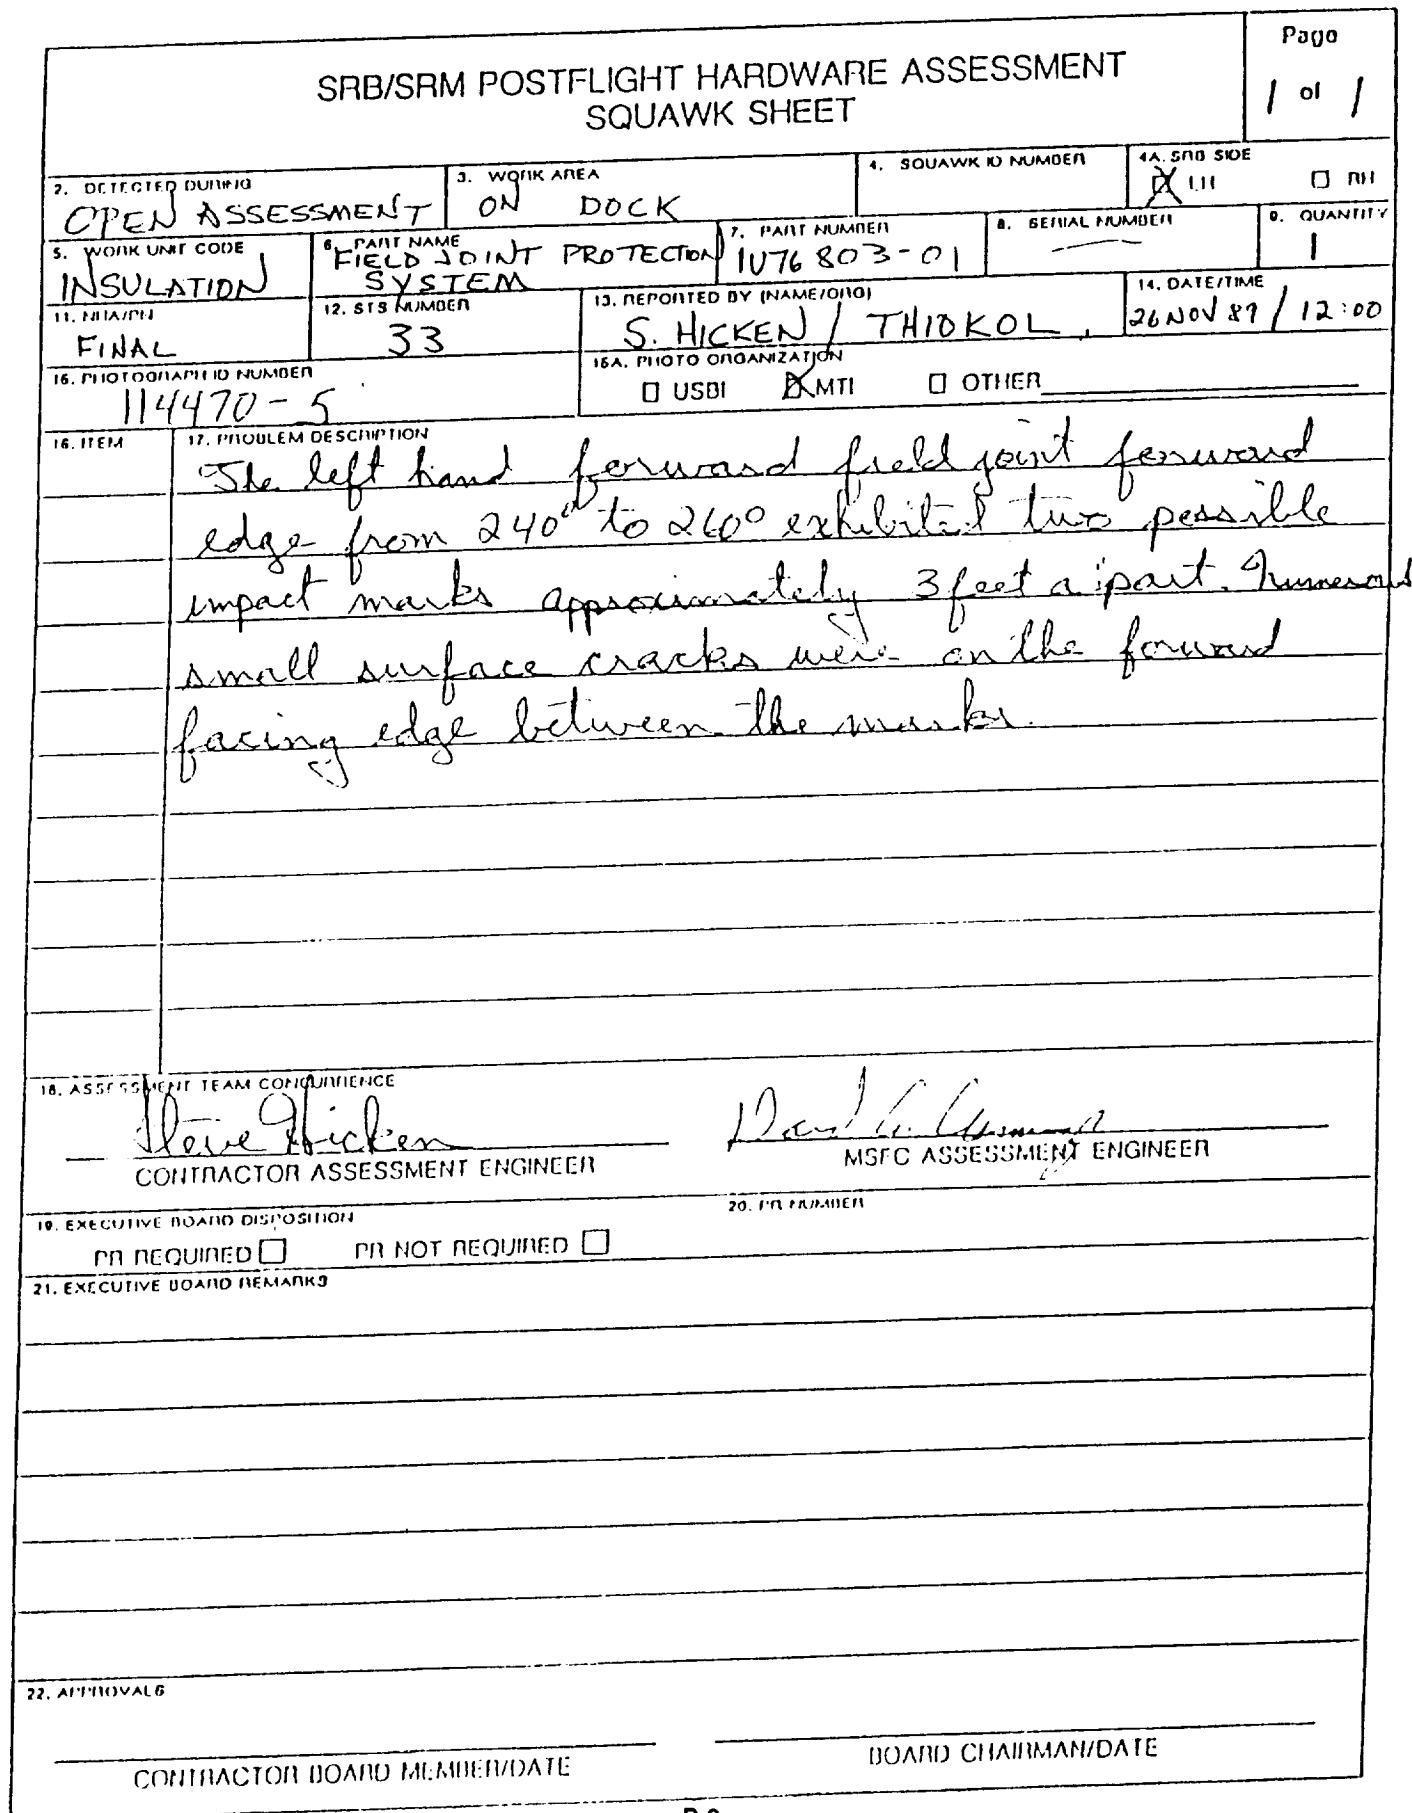 Page
1 of 1
SRB/SRM POSTFLIGHT HARDWARE ASSESSMENT
SQUAWK SHEET
2. DETECTED DURING
OPEN ASSESSMENT
3. WORK AREA
ON DOCK
4. SQUAWK ID NUMBER
4A. SRB SIDE
LH RH
5. WORK UNIT CODE
INSULATION
6. PART NAME
FIELD JOINT PROTECTION
SYSTEM
7. PART NUMBER
1U76803-01
8. SERIAL NUMBER
9. QUANTITY
1
11. NHA/PN
FINAL
12. STS NUMBER
33
13. REPORTED BY (NAME/ORG)
S. HICKEN / THIOKOL
14. DATE/TIME
26 NOV 89 / 12:00
15. PHOTOGRAPH ID NUMBER
114470-5
15A. PHOTO ORGANIZATION
USBI MTI OTHER
16. ITEM
17. PROBLEM DESCRIPTION
The left hand forward field joint forward
edge from 240° to 260° exhibited two possible
impact marks approximately 3 feet apart. Numerous
small surface cracks were on the forward
facing edge between the marks.
18. ASSESSMENT TEAM CONCURRENCE
Steve Hicken
CONTRACTOR ASSESSMENT ENGINEER
MSFC ASSESSMENT ENGINEER
19. EXECUTIVE BOARD DISPOSITION
PR REQUIRED PR NOT REQUIRED
20. PR NUMBER
21. EXECUTIVE BOARD REMARKS
22. APPROVALS
CONTRACTOR BOARD MEMBER/DATE
BOARD CHAIRMAN/DATE